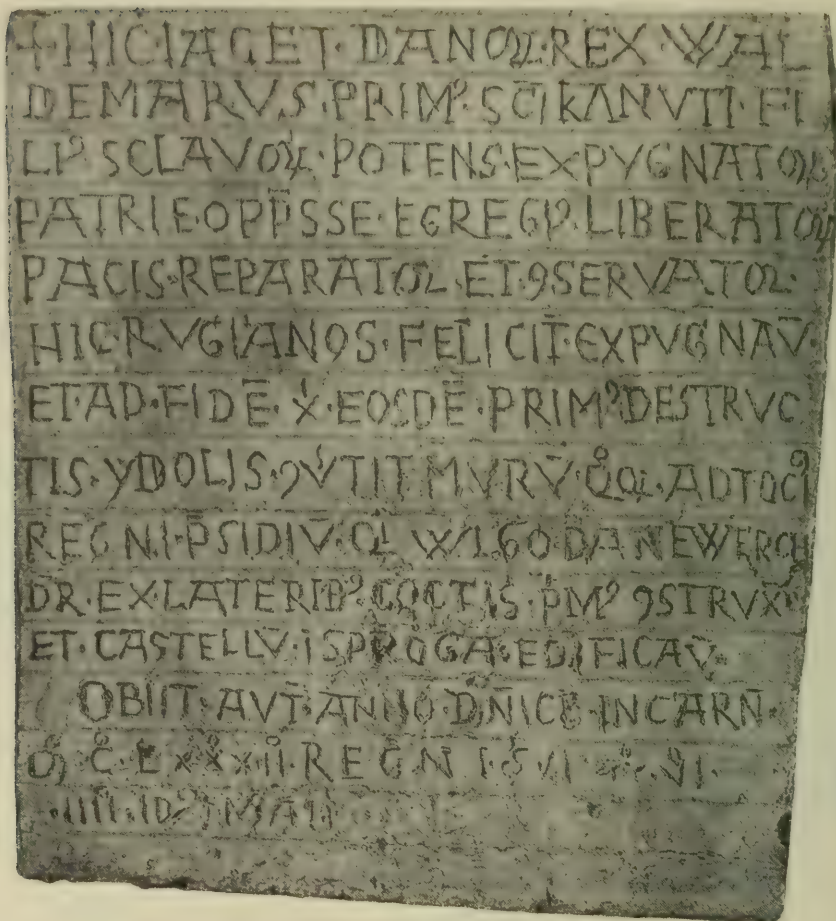 + HIC·IACET·DANOꝜ·REX·WAL
DEMARVS·PRIMꝰ·SC̄I KANVTI·FI
LIꝰ SCLAVOꝜ·POTENS·EXPVGNATOR
PATRIE·OPP̄SSE·EGREGIꝰ·LIBERATOR
PACIS·REPARATOR·ET·ꝯSERVATOR·
HIC·RVGIANOS·FELICIT̄·EXPVGNAV̄·
ET·AD·FIDĒ·X̄·EOSDĒ·PRIMꝰ·DESTRVC
TIS·YDOLIS·ꝯVTIT MVRV̄·QͦQꝫ·AD TOCIꝰ
REGNI·P̄SIDIV̄·Q WLGO·DANEWERCH
DR·EX·LATERIBꝰ COCTIS·PͥMꝰ ꝯSTRVXIT
ET·CASTELLV̄·I SPROGA·EDIFICAV̄·
OBIIT·AVT̄·ANNO·DN̄ICE·INCARN̄·
C·LXXXII·REGNI·SVI
·IIII·IDꝰ·MAII